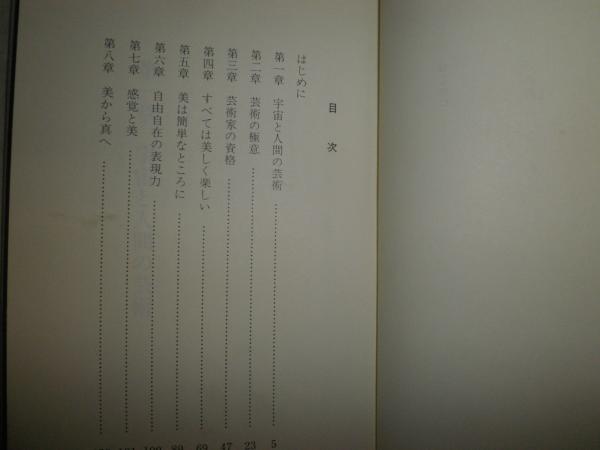 目次
はじめに
第一章　宇宙と人間の芸術 5
第二章　芸術の極意 23
第三章　芸術家の資格 47
第四章　すべては美しく楽しい 69
第五章　美は簡単なところに 89
第六章　自由自在の表現力
第七章　感覚と美
第八章　美から真へ